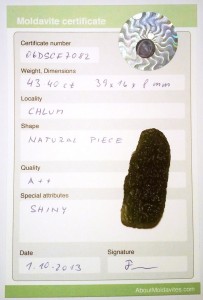 Moldavite certificate
Certificate number
06DSCF7082
Weight, Dimensions
43.40 ct 39x16x8 mm
Locality
CHLUM
Shape
NATURAL PIECE
Quality
A++
Special attributes
SHINY
Date
Signature
1.10.2013
AboutMoldavites.com